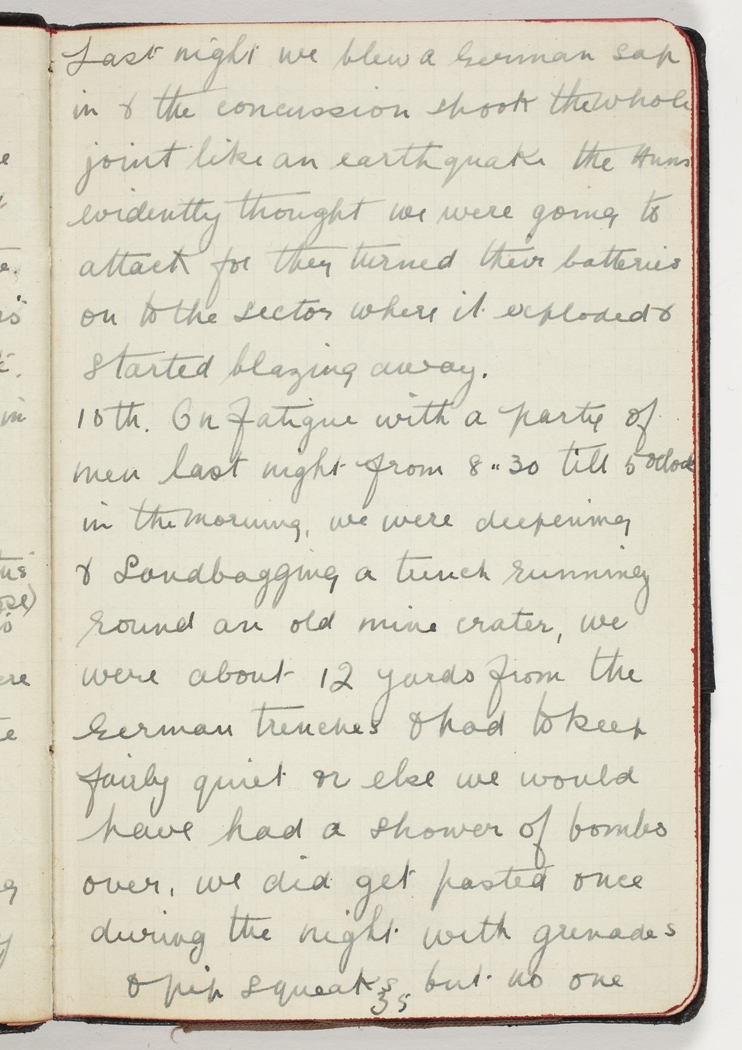 Last night we blew a German sap
in & the concussion shook the whole
joint like an earthquake the Huns
evidently thought we were going to
attack for they turned their batteries
on to the sector where it exploded &
started blazing away.
10th. On fatigue with a party of
men last night from 8"30 till 5 oclock
in the morning, we were deepening
& Sandbagging a trench running
round an old mine crater, we
were about 12 yards from the
German trenches & had to keep
fairly quiet or else we would
have had a shower of bombs
over, we did get pasted once
during the night with grenades
& pip squeaks but no one
35